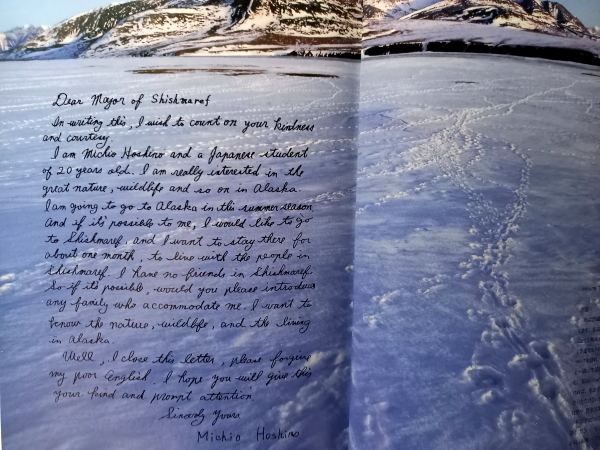 Dear Mayor of Shishmaref
In writing this, I wish to count on your kindness
and courtesy
I am Michio Hoshino and a Japanese student
of 20 years old. I am really interested in the
great nature, wildlife and so on in Alaska.
I am going to go to Alaska in this summer season
And if it's possible to me, I would like to go
to Shishmaref, and I want to stay there for
about one month, to live with the people in
Shishmaref. I have no friends in Shishmaref.
So if it's possible, would you please introduce
any family who accommodate me. I want to
know the nature, wildlife, and the living
in Alaska.
Well, I close this letter, please forgive
my poor English. I hope you will give this
your kind and prompt attention.
Sincerly Yours
Michio Hoshino